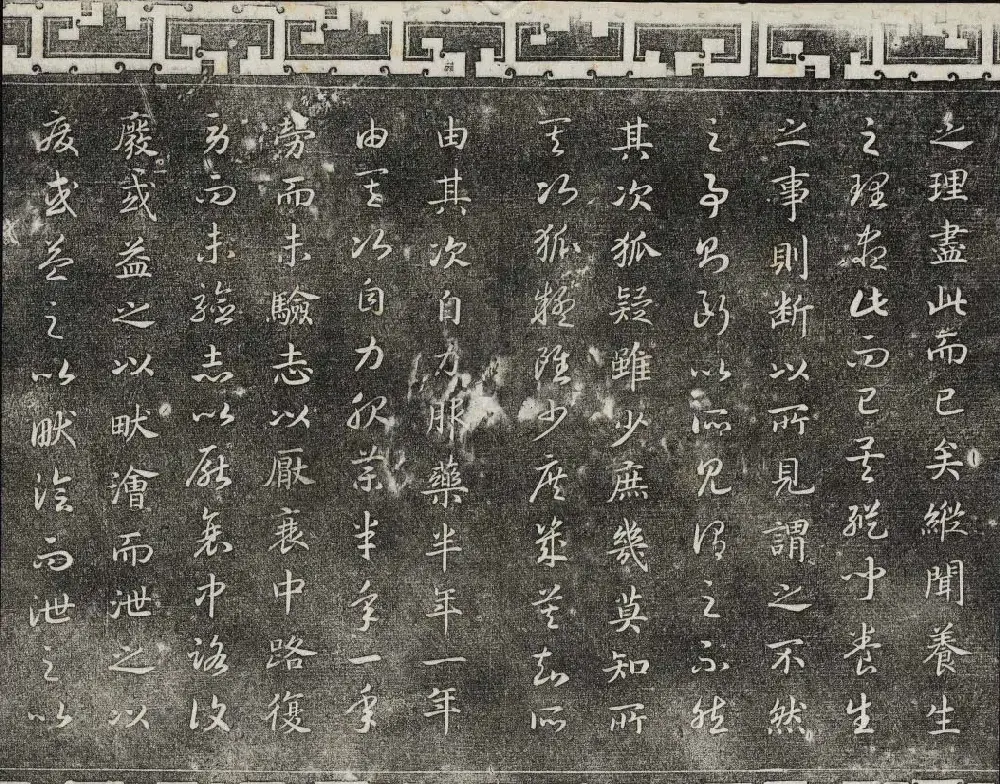 之理盡此而已矣縱聞養生
之理盡此而已矣縱聞養生
之事則断以所見謂之不然
之事則断以所見謂之不然
其次狐疑雖少庶幾莫知所
其次狐疑雖少庶幾莫知所
由其次自力服藥半年一年
由其次自力服藥半年一年
勞而未驗志以厭衰中路復
勞而未驗志以厭衰中路復
廢或益之以畎澮而泄之以
廢或益之以畎澮而泄之以